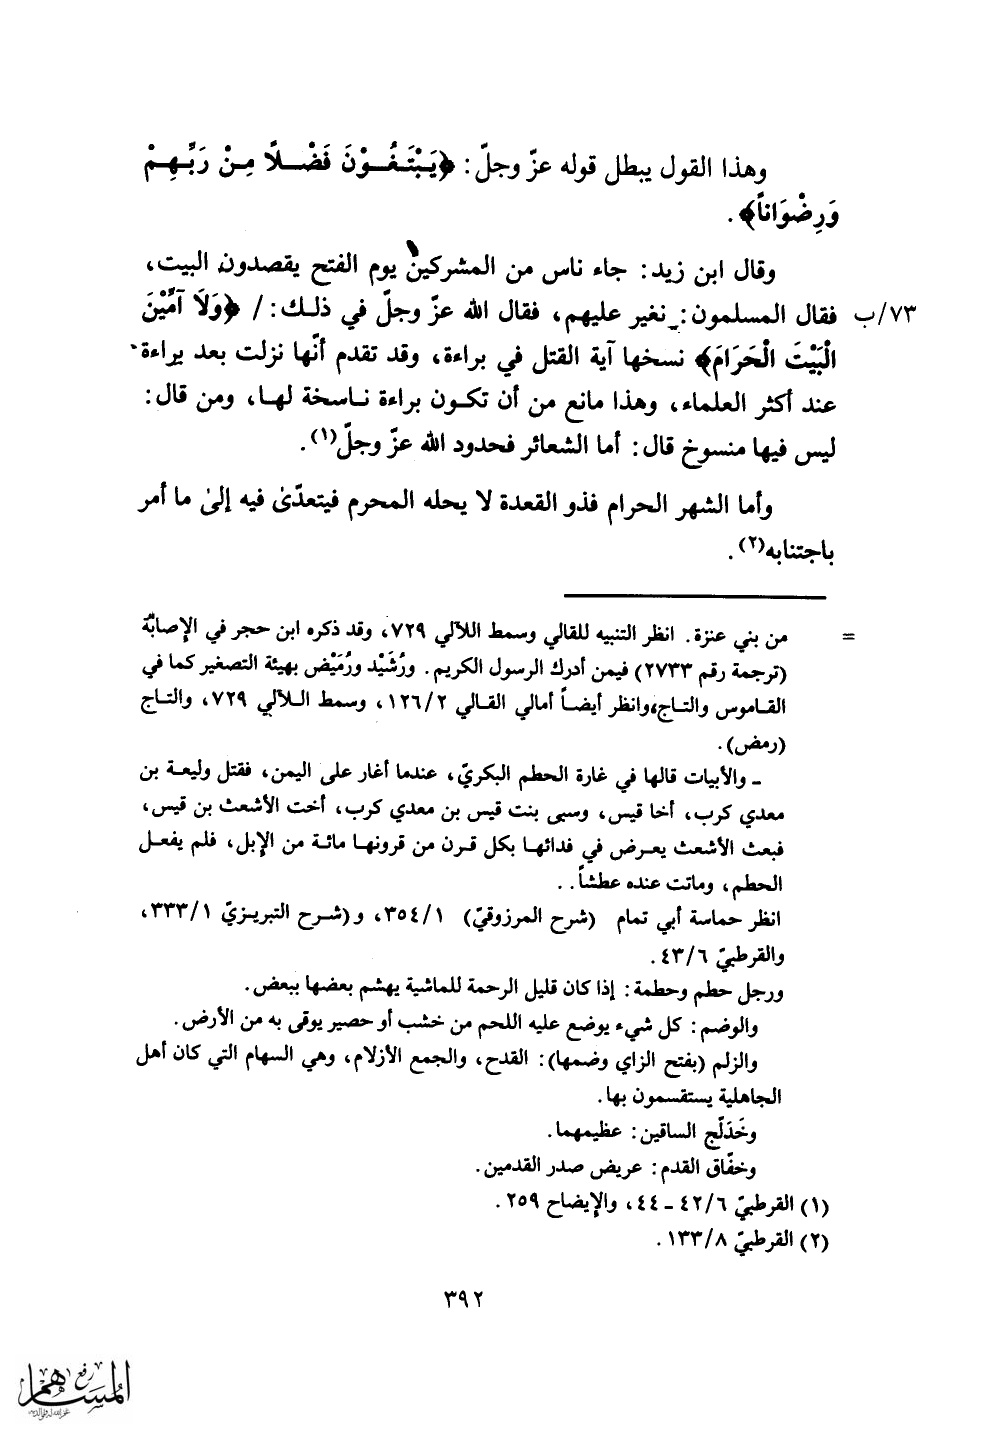 وهذا القول يبطل قوله عزّ وجلّ: ﴿يَبْتَغُـوْنَ فَضْلًا مِنْ رَبِّهِمْ
وَرِضْوَاناً﴾.
وقال ابن زيد: جاء ناس من المشركين يوم الفتح يقصدون البيت،
٧٣/ب فقال المسلمون: نغير عليهم، فقال الله عزّ وجلّ في ذلك: / ﴿وَلَا آمِّيْنَ
الْبَيْتَ الْحَرَامَ﴾ نسخها آية القتل في براءة، وقد تقدم أنّها نزلت بعد براءة
عند أكثر العلماء، وهذا مانع من أن تكون براءة ناسخة لها، ومن قال:
ليس فيها منسوخ قال: أما الشعائر فحدود الله عزّ وجلّ(١).
وأما الشهر الحرام فذو القعدة لا يحله المحرم فيتعدّىٰ فيه إلىٰ ما أمر
باجتنابه(٢).
= من بني عنزة. انظر التنبيه للقالي وسمط اللآلي ٧٢٩، وقد ذكره ابن حجر في الإصابة
(ترجمة رقم ٢٧٣٣) فيمن أدرك الرسول الكريم. ورُشَيْد ورُمَيْض بهيئة التصغير كما في
القاموس والتاج، وانظر أيضاً أمالي القالي ١٢٦/٢، وسمط اللآلي ٧٢٩، والتاج
(رمض).
ـ والأبيات قالها في غارة الحطم البكريّ، عندما أغار على اليمن، فقتل وليعة بن
معدي كرب، أخا قيس، وسبى بنت قيس بن معدي كرب، أخت الأشعث بن قيس،
فبعث الأشعث يعرض في فدائها بكل قرن من قرونها مائة من الإبل، فلم يفعل
الحطم، وماتت عنده عطشاً..
انظر حماسة أبي تمام (شرح المرزوقيّ) ٣٥٤/١، و(شرح التبريزيّ ٣٣٣/١،
والقرطبيّ ٤٣/٦.
ورجل حطم وحطمة: إذا كان قليل الرحمة للماشية يهشم بعضها ببعض.
والوضم: كل شيء يوضع عليه اللحم من خشب أو حصير يوقى به من الأرض.
والزلم (بفتح الزاي وضمها): القدح، والجمع الأزلام، وهي السهام التي كان أهل
الجاهلية يستقسمون بها.
وخَدَلَّج الساقين: عظيمهما.
وخفّاق القدم: عريض صدر القدمين.
(١) القرطبيّ ٤٢/٦ ـ ٤٤، والإيضاح ٢٥٩.
(٢) القرطبيّ ١٣٣/٨.
٣٩٢